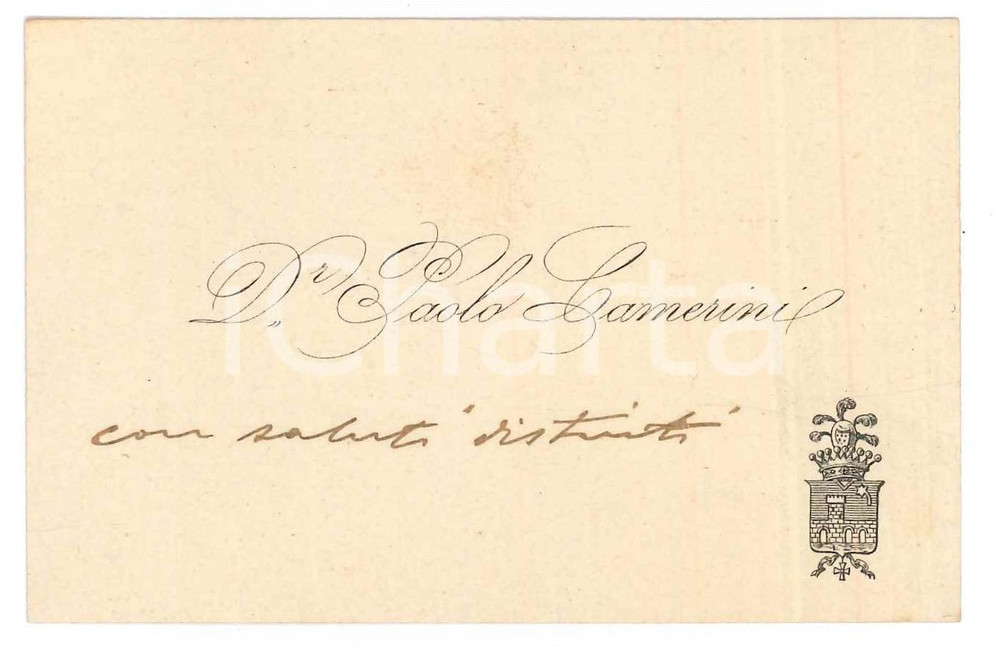 Dr. Paolo Camerini
iCharta
con saluti "distinti"